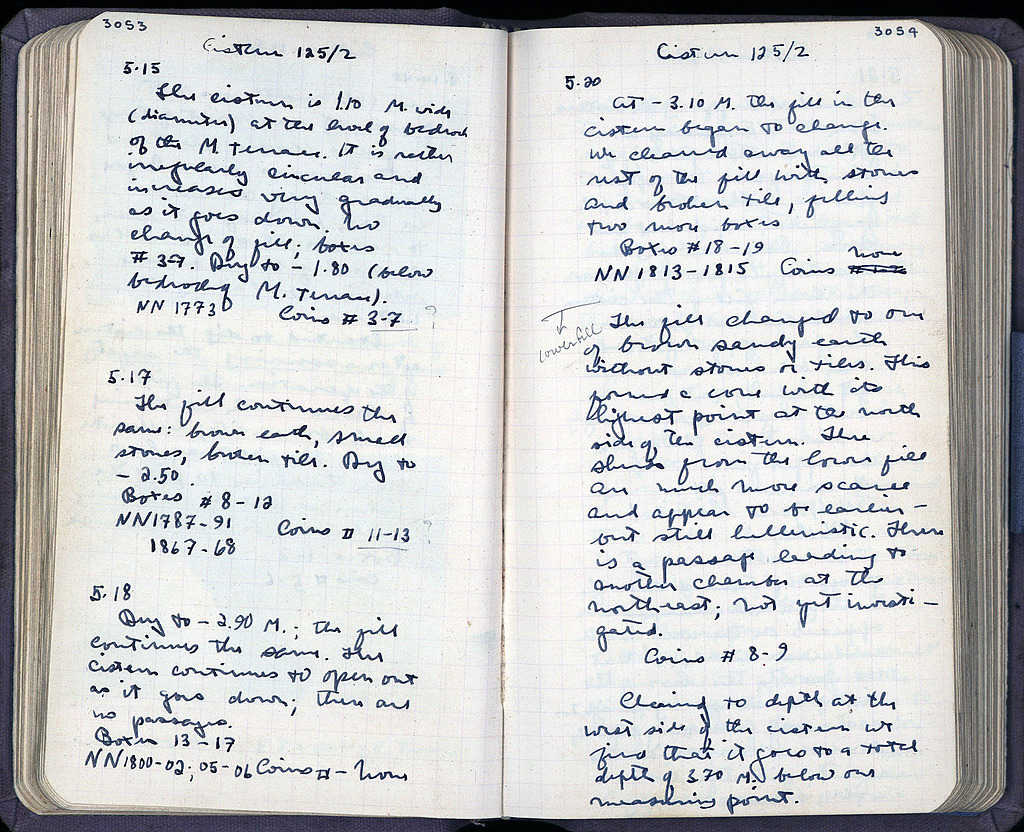 3053
Cistern 125/2
5.15
The cistern is 1.10 M. wide
(diameter) at the level of bedrock
of the M. Terrace. It is rather
irregularly circular and
increases very gradually
as it goes down. No
change of fill; boxes
# 3-7. Dug to - 1.80 (below
bedrock of M. Terrace).
NN 1773 Coins # 3-7 ?
5.17
The fill continues the
same: brown earth, small
stones, broken tile. Dug to
- 2.50.
Boxes # 8-12
NN1787-91 Coins # 11-13 ?
1867-68
5.18
Dug to - 2.90 M.; the fill
continues the same. The
cistern continues to open out
as it goes down; there are
no passages.
Boxes 13-17
NN1800-02; 05-06 Coins # - None
3054
Cistern 125/2
5.20
At - 3.10 M. the fill in the
cistern began to change.
We cleared away all the
rest of the fill with stones
and broken tile, filling
two more boxes
Boxes #18-19
NN 1813-1815 Coins none
lower fill
The fill changed to one
of brown sandy earth
without stones or tiles. This
formed a cone with its
highest point at the north
side of the cistern. The
sherds from the lower fill
are much more scarce
and appear to be earlier -
but still hellenistic. There
is a passage leading to
another chamber at the
northeast; not yet investi-
gated.
Coins # 8-9
Clearing to depth at the
west side of the cistern we
find that it goes to a total
depth of 3.70 M. below our
measuring point.